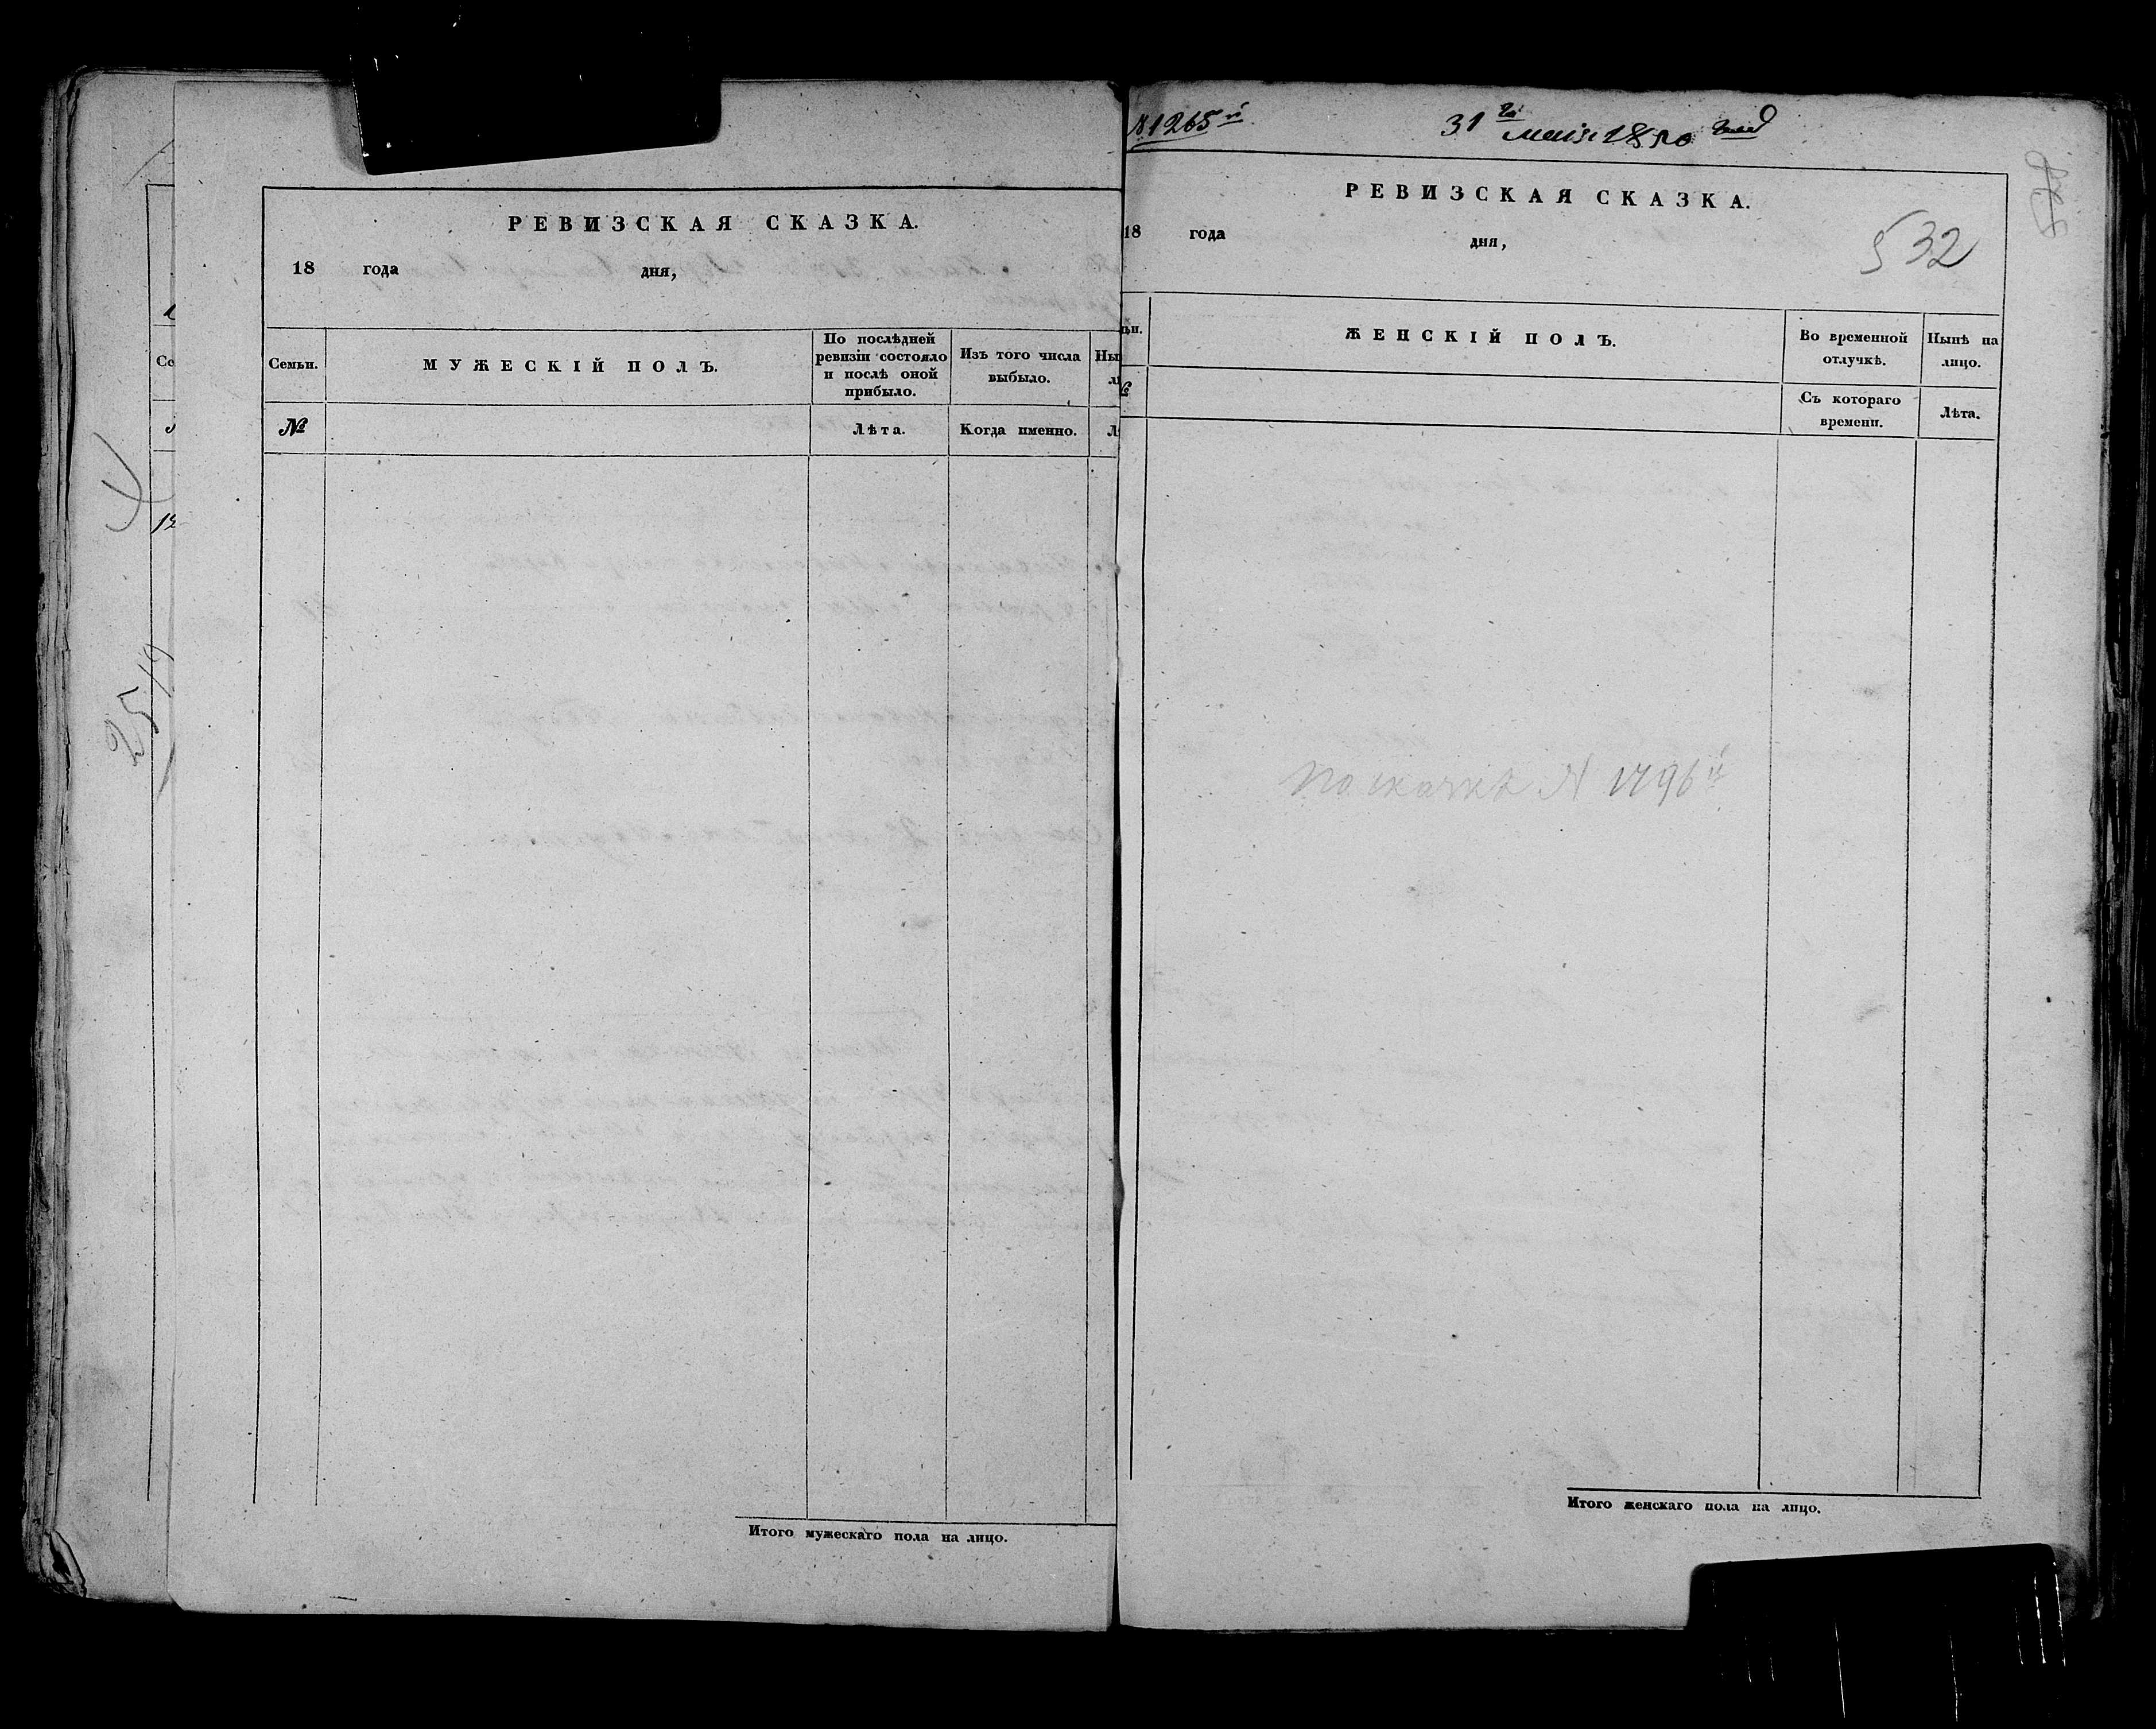 РЕВИЗСКАЯ СКАЗКА.
18 года дня,
Семьи.
МУЖЕСКІЙ ПОЛЪ.
По послѣдней
ревизіи состояло
и послѣ оной
прибыло.
Изъ того числа
выбыло.
Ны
№
Лѣта.
Когда именно.
Итого мужескаго пола на лицо.
12
25
№ 1265й
31го маія 1850 года
РЕВИЗСКАЯ СКАЗКА.
18 года дня,
532
ЖЕНСКІЙ ПОЛЪ.
Во временной
отлучкѣ.
Нынѣ на
лицо.
Съ котораго
времени.
Лѣта.
По скаскѣ N 1796й
Итого женскаго пола на лицо.